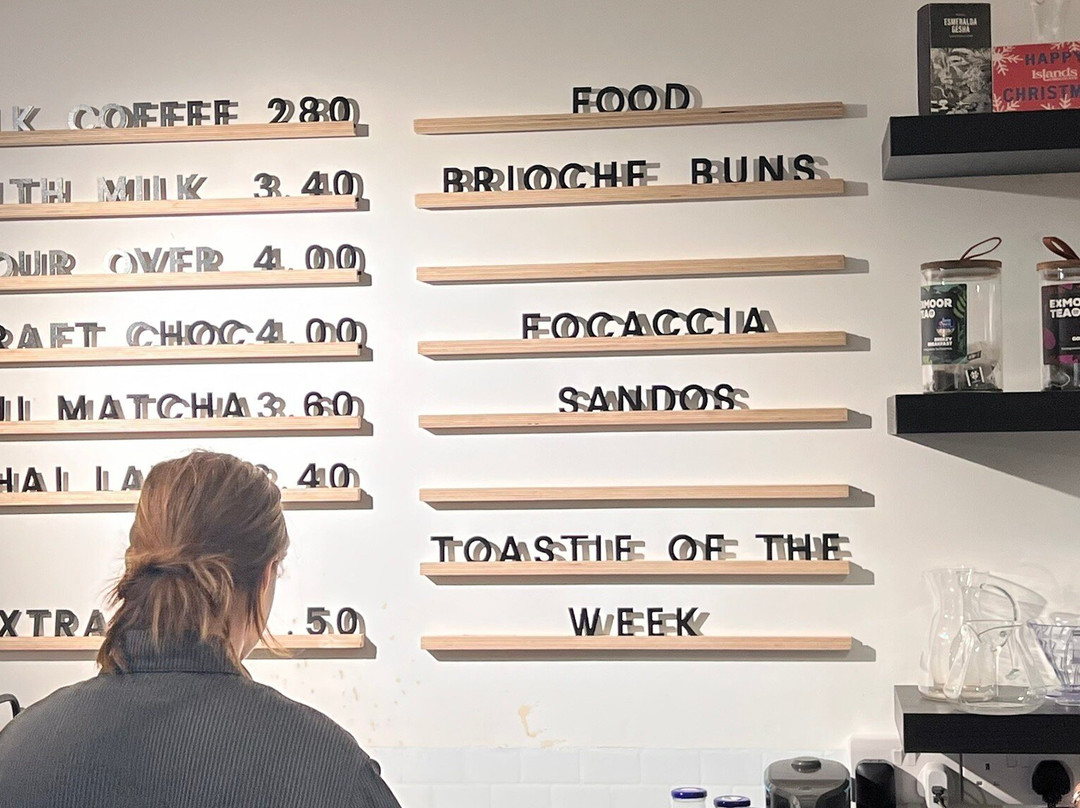 K COFFEE 280
ITH MILK 3.40
OUR OVER 4.00
RAFT CHOC 4.00
II MATCHA 3.60
HAI LA .40
XTRA .50
FOOD
BRIOCHE BUNS
FOCACCIA
SANDOS
TOASTIE OF THE
WEEK
ESMERALDA
GESHA
HAPPY
Islands
CHRISTM
XMOOR
TEA
SMOKY
BREAKFAST
EXMOOR
TEA